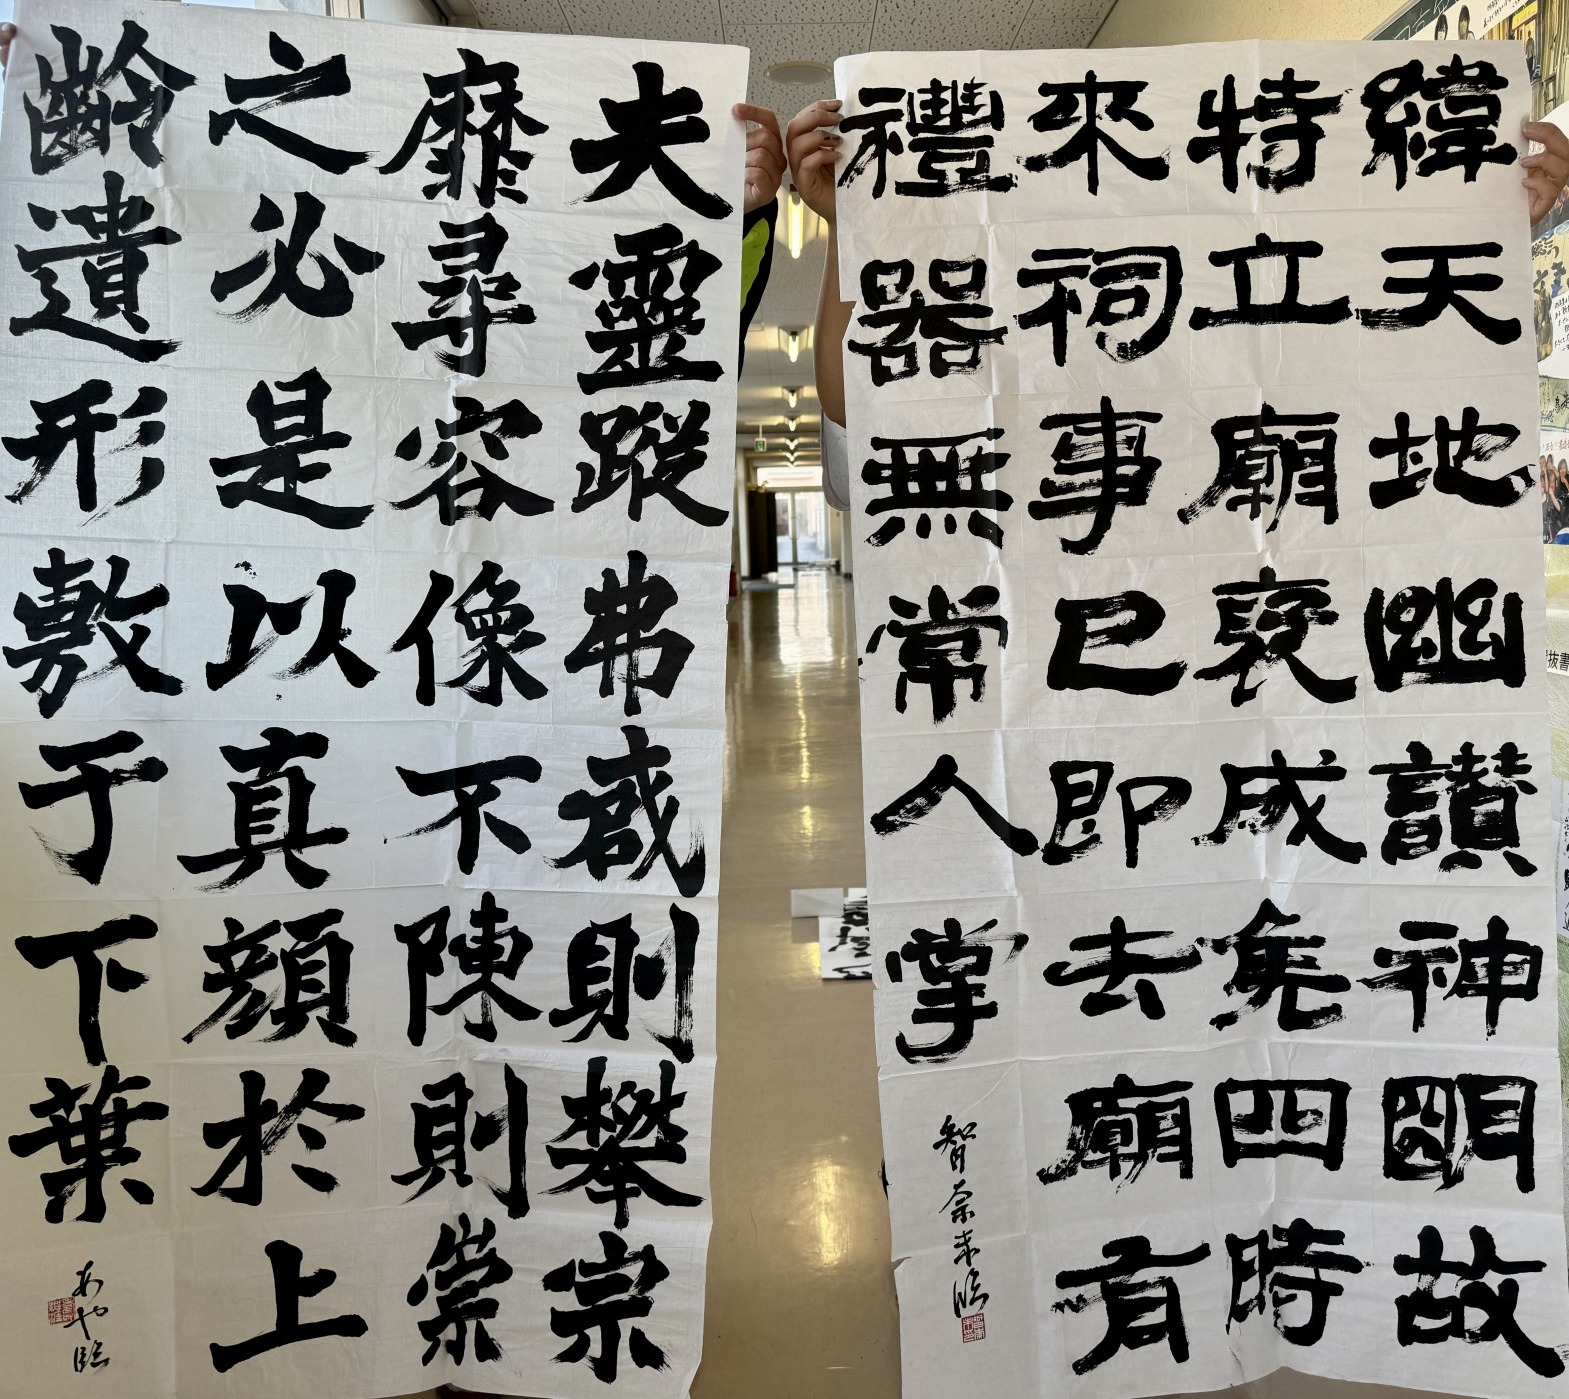 緯天地幽讃神明故
特立廟褒成侯四時
來祠事已即去廟有
禮器無常人掌
智奈未臨
夫靈蹤弗則攀宗
靡尋容像不陳則崇
之必是以真顔於上
齡遺形敷于下葉
あや臨